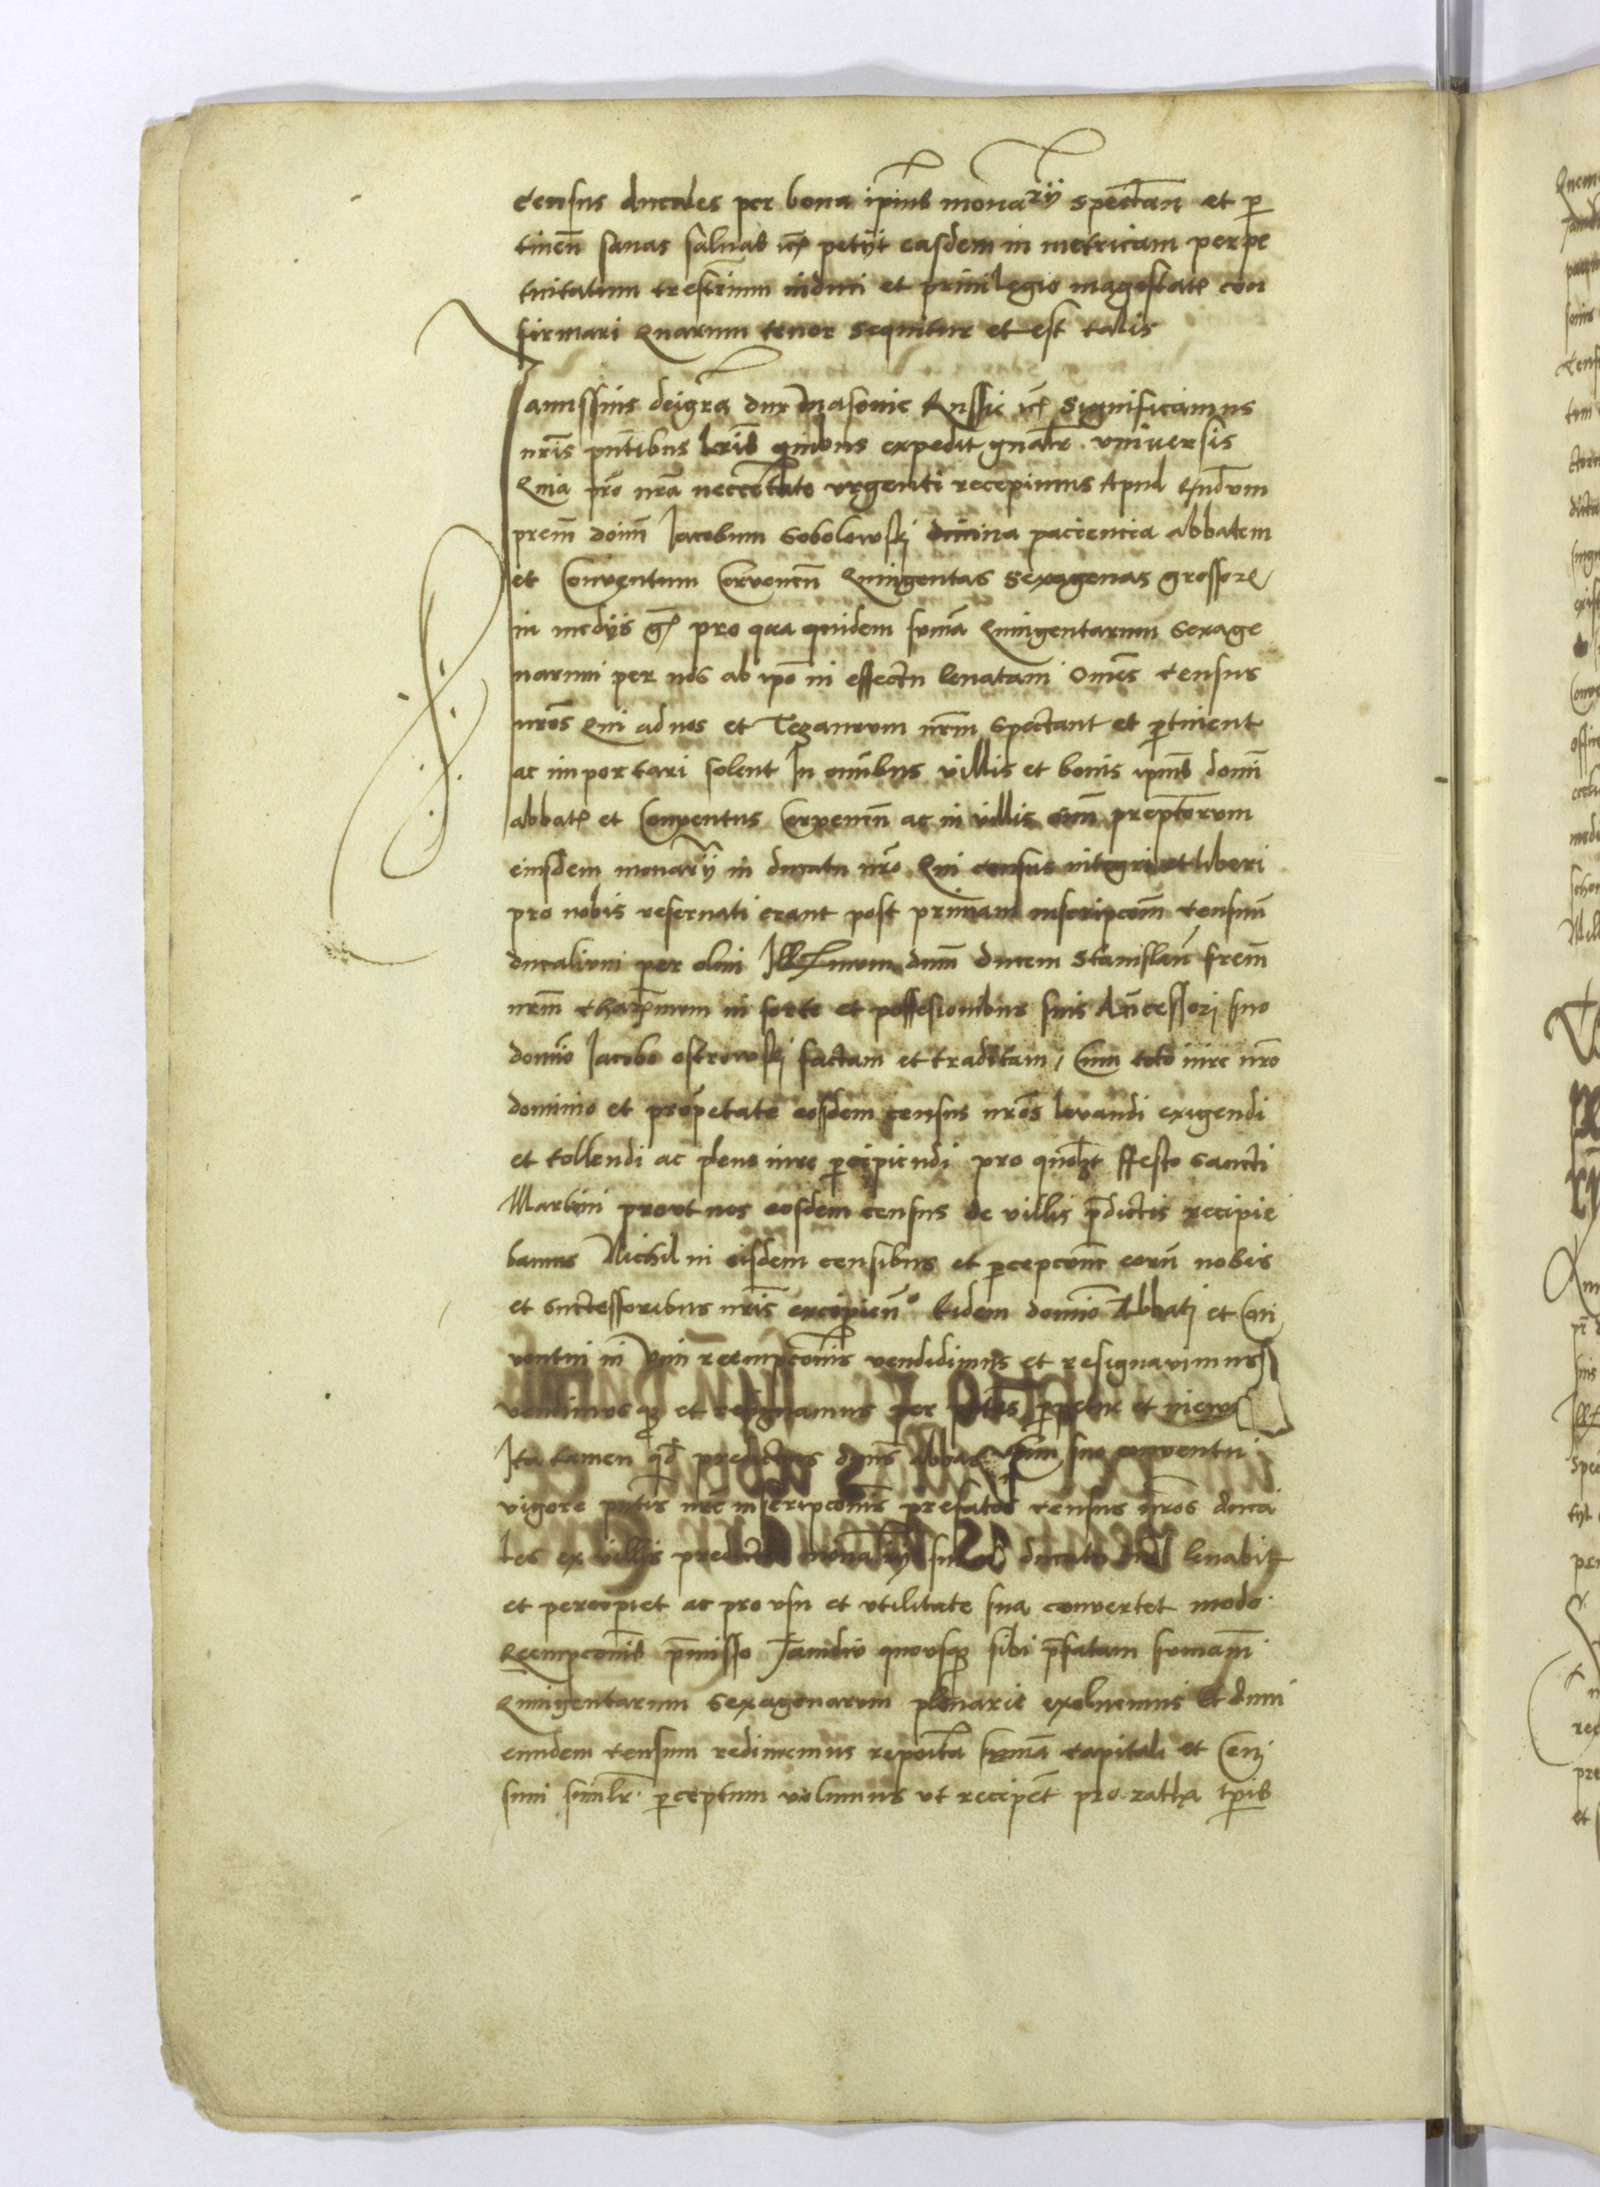 census ducales per bona ip̄ius monarij spectan̄ et p
tinen̄ sanas saluas etc petyt easdem in metricam perpe
tuitatum trestrium induci et priuilegio magestatē con
firmari Quarum tenor sequitur et est talis
Janussius deigr̄a dux Masouie Russie etc Significamus
nr̄is pn̄tibus lr̄is quibus expedit gn̄alr̄ vniuersis
Quia pro nr̄a necc̄itate vrgenti recepimus Apud
prem̄ dom̄ Jacobum Sobolewskj diuina paciencia abbatem
et Conventum Czervenen̄ Quingentas Sexagenas grossor̄
in medijs gr̄ pro qua quidem sum̄a Quingentarum Sexage
narum per nos ab ip̄o in effectu leuatam Om̄es census
nr̄os Qui ad nos et Tezaurum nr̄m spectant et ptinent
ac importari solent In om̄ibus villis et bonis ip̄ius dom̄i
abbatis et Conventus Czervenen̄ ac in villis om̄ prep̄torum
eiusdem monarij in ducatu nr̄o Qui census integri et liberi
pro nobis reseruati erant post primam inscripcōm censuum
ducalium per olim Ill̄mum dum̄ ducem Stanislau̅ frem̄
nr̄m char̄mum in sorte et possessionibus suis An̄cessorj suo
domi̅o Jacobo ostrowskj factam et traditam, Cum toto iure nr̄o
dominio et prop̄etate eosdem census nr̄os levandi exigendi
et tollendi ac pleno iure pcipiendi pro quol̄zt ffesto Sancti
Martini prout nos eosdem census de villis p̄dictis recipie
bamus Nichil in eisdem censibus et pcepcōne eoru̅ nobis
et successoribus nr̄is excipien̄o Eidem domi̅o Abbatj et Con
ventui in vim reempcōnis vendidimus et resignavimus
vendimusq et resignamus per pn̄tes
Ita tamen qd̄ predictus dn̄s abbas cum suo conventu
vigore pn̄tis nr̄e inscripcōnis prefatos census nr̄os duca
les ex villis predicti monarij sui in ducatu nr̄o leuabit
et percipiet ac pro vsu et vtilitate sua convertet modo
Reempcōnis p̄misso Tamdiu quousq sibi p̄fatam sumam̄
Quingentarum Sexagenarum plenarie exoluemus Et dum
eundem censum redimemus reposita sum̄a capitali et Cen
sum similr̄ pceptum volumus vt recipe̅t pro ratha tp̄is